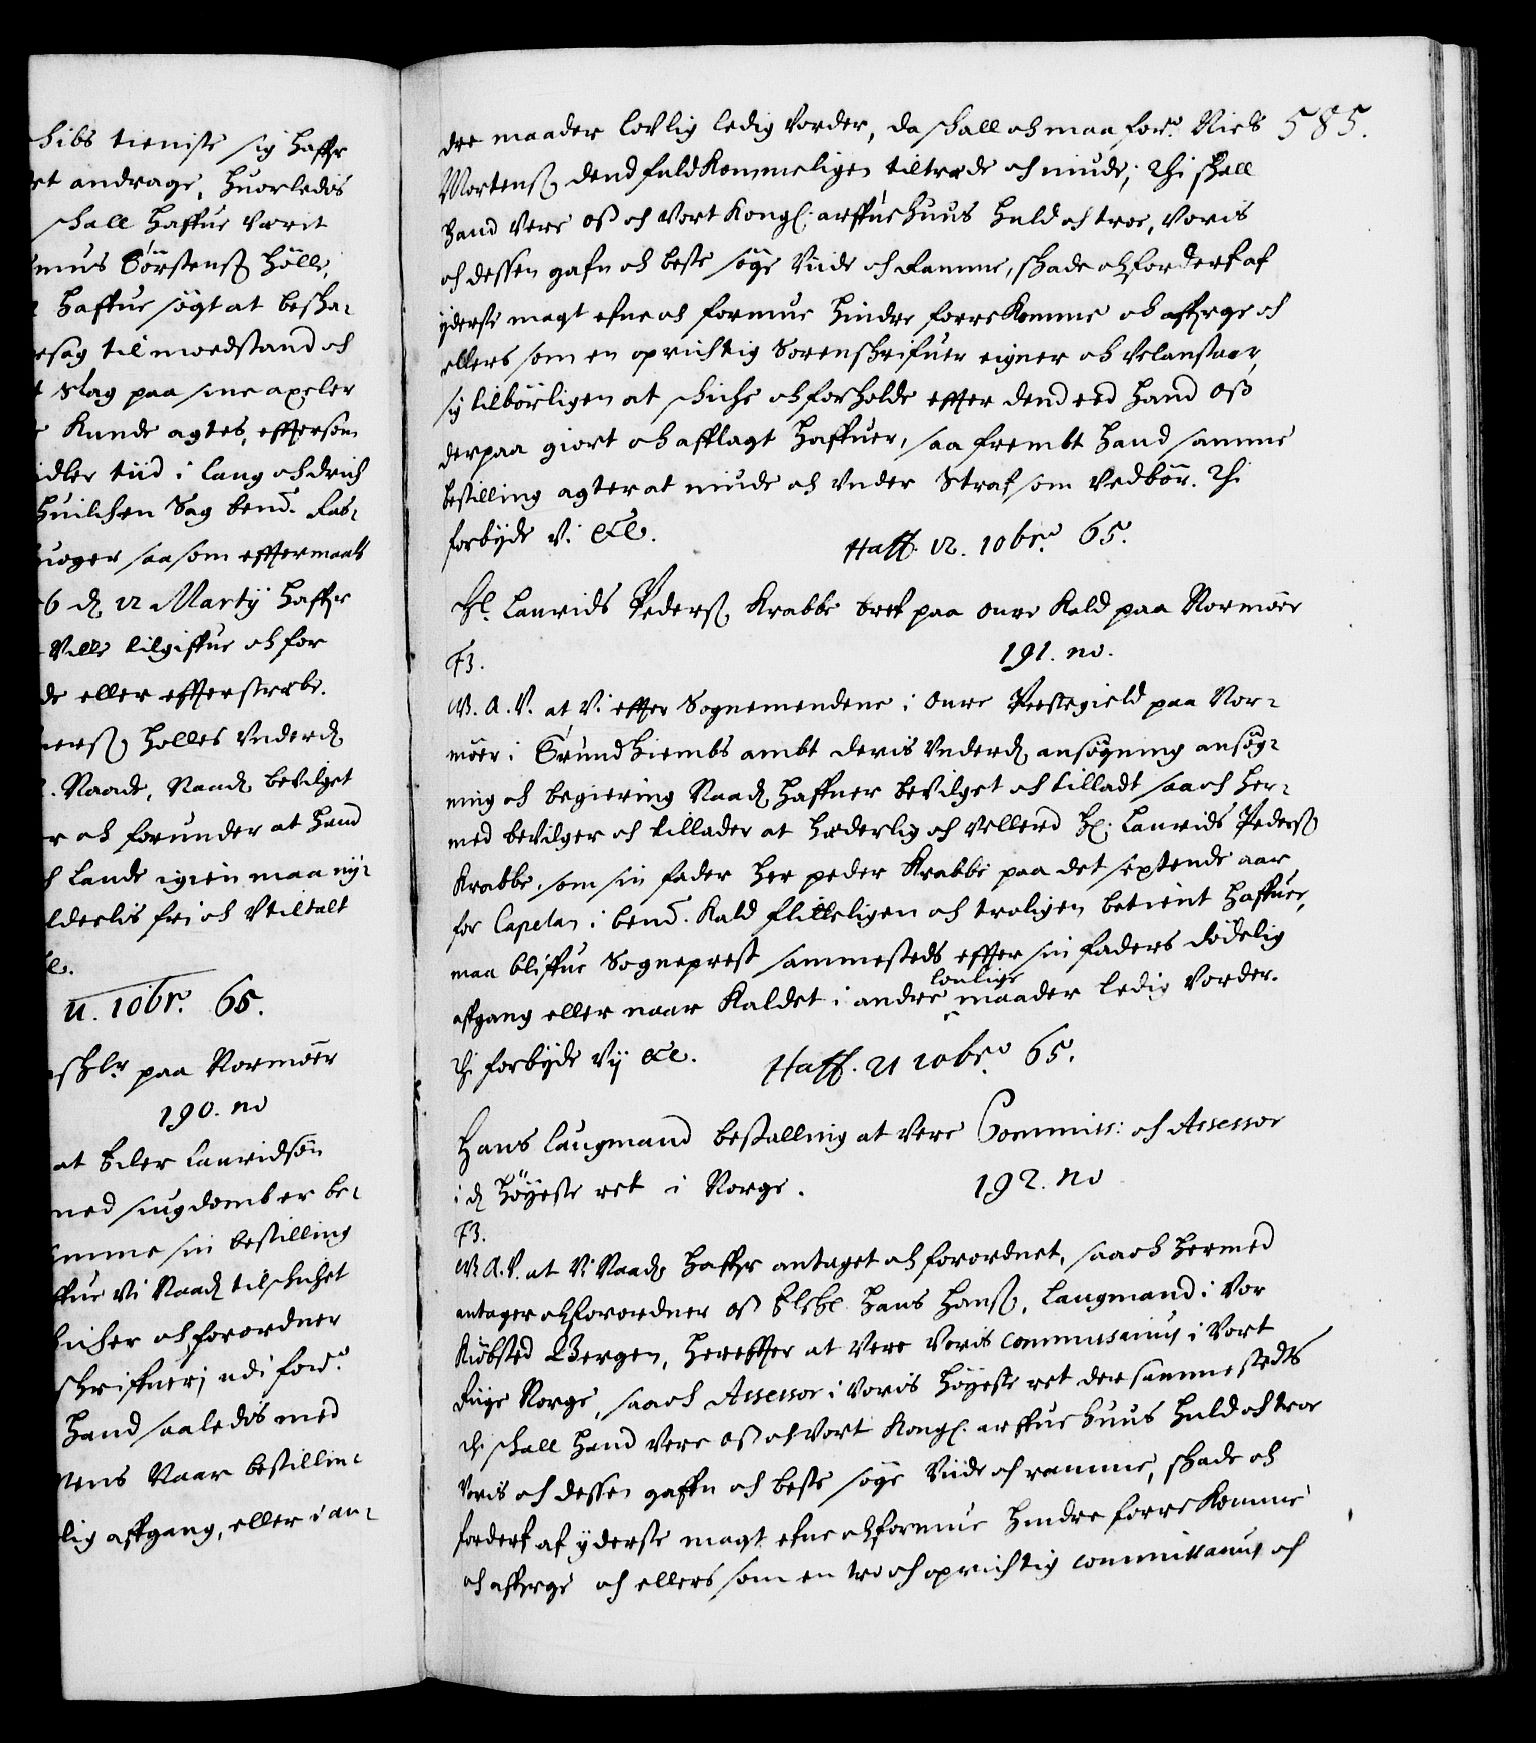 hibs tieniste sig haffr
rt andrage, huorledis
shall haffue verit
mus Törstensø Hölle,
haffue søgt at besha-
rsag til modstand och
slag paa sine axeler
Kunde agtes, effterson
idler tiid i lang och drich
huilchen Sag bend. Ras-
uoger saasom efftermaalt
6 d. 12 Martij haffr
Ville tilgiffue och for
de eller efftersträbe.
ersø Holles Underd.
. Naade, Naad. bevilget
r och forunder at hand
h lande igien maa nÿ-
lderlis fri och Utiltalt
e.
11. 10br. 65.
shlr paa Normöer
190. no
at Eiler Lauridsön
med siugdomb er be-
mme sin bestilling
ffue Vi Naad. tilschichet
icher och forordner
schriffuerj udi ford.
hand saaledis med
tens Naar bestillin-
lig affgang, eller i an-
585.
dre maader lovlig ledig Vorder, da shall och maa for.e Niels
Mortensø dend fuldkommeligen tiltrede och niude; Thi shall
hand Vere oß och Vort Kongl. arffue huus huld och troe, Voris
och dessen gafn och beste søge Viide och Ramme, shade och forderf af
yderste magt efne och formue hindre forrekomme och afferge och
ellers som en oprichtig Sorenschrifuer eigner och Velanstaar,
sig tilbörligen at schiche och forholde effter dend eed hand oß
derpaa giort och afflagt haffuer, saa fremt hand samme
bestilling agter at niude och Under Straf som Vedbör. Thi
forbÿde Vi etc.
Haff. 12. 10br. 65.
Hl. Laurids Pedersø Krabbe bref paa Oure Kald paa Normöer
191. no.
F3.
W. A. V. at Vi effter Sognemendene i Oure Prestegield paa Nor-
möer i Trundhiembs ambt deris Underd. ansøgning ansøg-
ning och begiering Naad. haffuer bevilget och tilladt saa och her-
med bevilger och tillader at hæderlig och Vellerd Hl. Laurids Pedersø
Krabbe, som sin fader Her peder Krabbe paa det sextende aar
for Capelan i bend. Kald flitteligen och troligen betient haffuer,
maa bliffue Sogneprest sammesteds effter sin faders dödelig
affgang eller naar Kaldet i andre lovlige maader ledig Vorder.
Thi forbÿde Vij etc.
Haff. 21 10br. 65.
Hans Laugmand bestalling at Vere Commiss: och Assessor
i d. höÿeste ret i Norge.
192. no
F3.
W A. V. at Vi Naad. haffr antaget och forordnet, saa och hermed
antager och forordner oß Elskl. Hans Hansø, Laugmand i Vor
Kiöbsted Bergen, hereffter at Vere Voris Commissarius i Vort
Riige Norge, saa och Assessor i Voris höÿeste ret der sammesteds
Thi shall hand Vere oß och Vort Kongl. arffue huus huld och troe
Voris och dessen gaffn och beste søge Viide och ramme, shade och
forderf af yderste magt efne och formue hindre forrekomme
och afferge och ellers som en tro och oprichtig committarius och